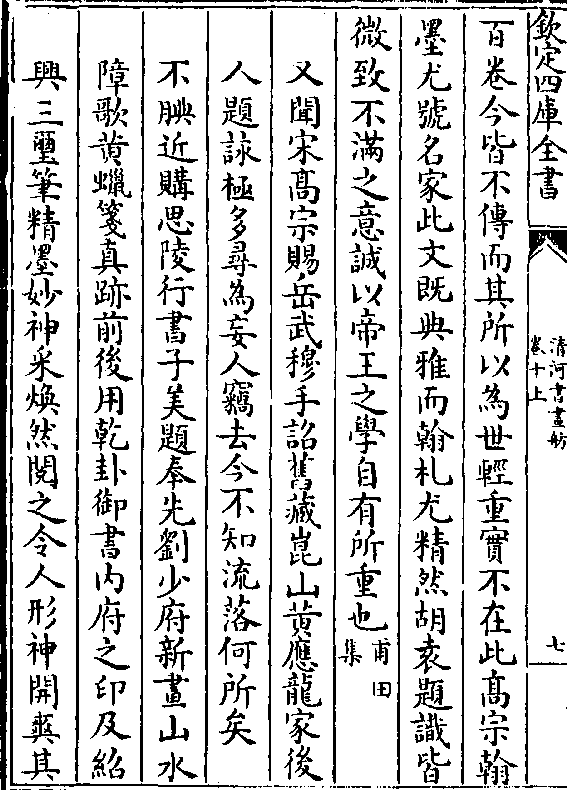 欽定四庫全書
清河書畫舫
卷十上
七
百卷今皆不傳而其所以為世輕重實不在此高宗翰
墨尤號名家此文既典雅而翰札尤精然胡袁題識皆
微致不滿之意誠以帝王之學自有所重也甫田
集
又聞宋髙宗賜岳武穆手詔舊藏崑山黄應龍家後
人題詠極多尋為妄人竊去今不知流落何所矣
不腆近購思陵行書子美題奉先劉少府新畫山水
障歌黄蠟箋真跡前後用乾卦御書内府之印及紹
興三璽筆精墨妙神采煥然閱之令人形神開爽其